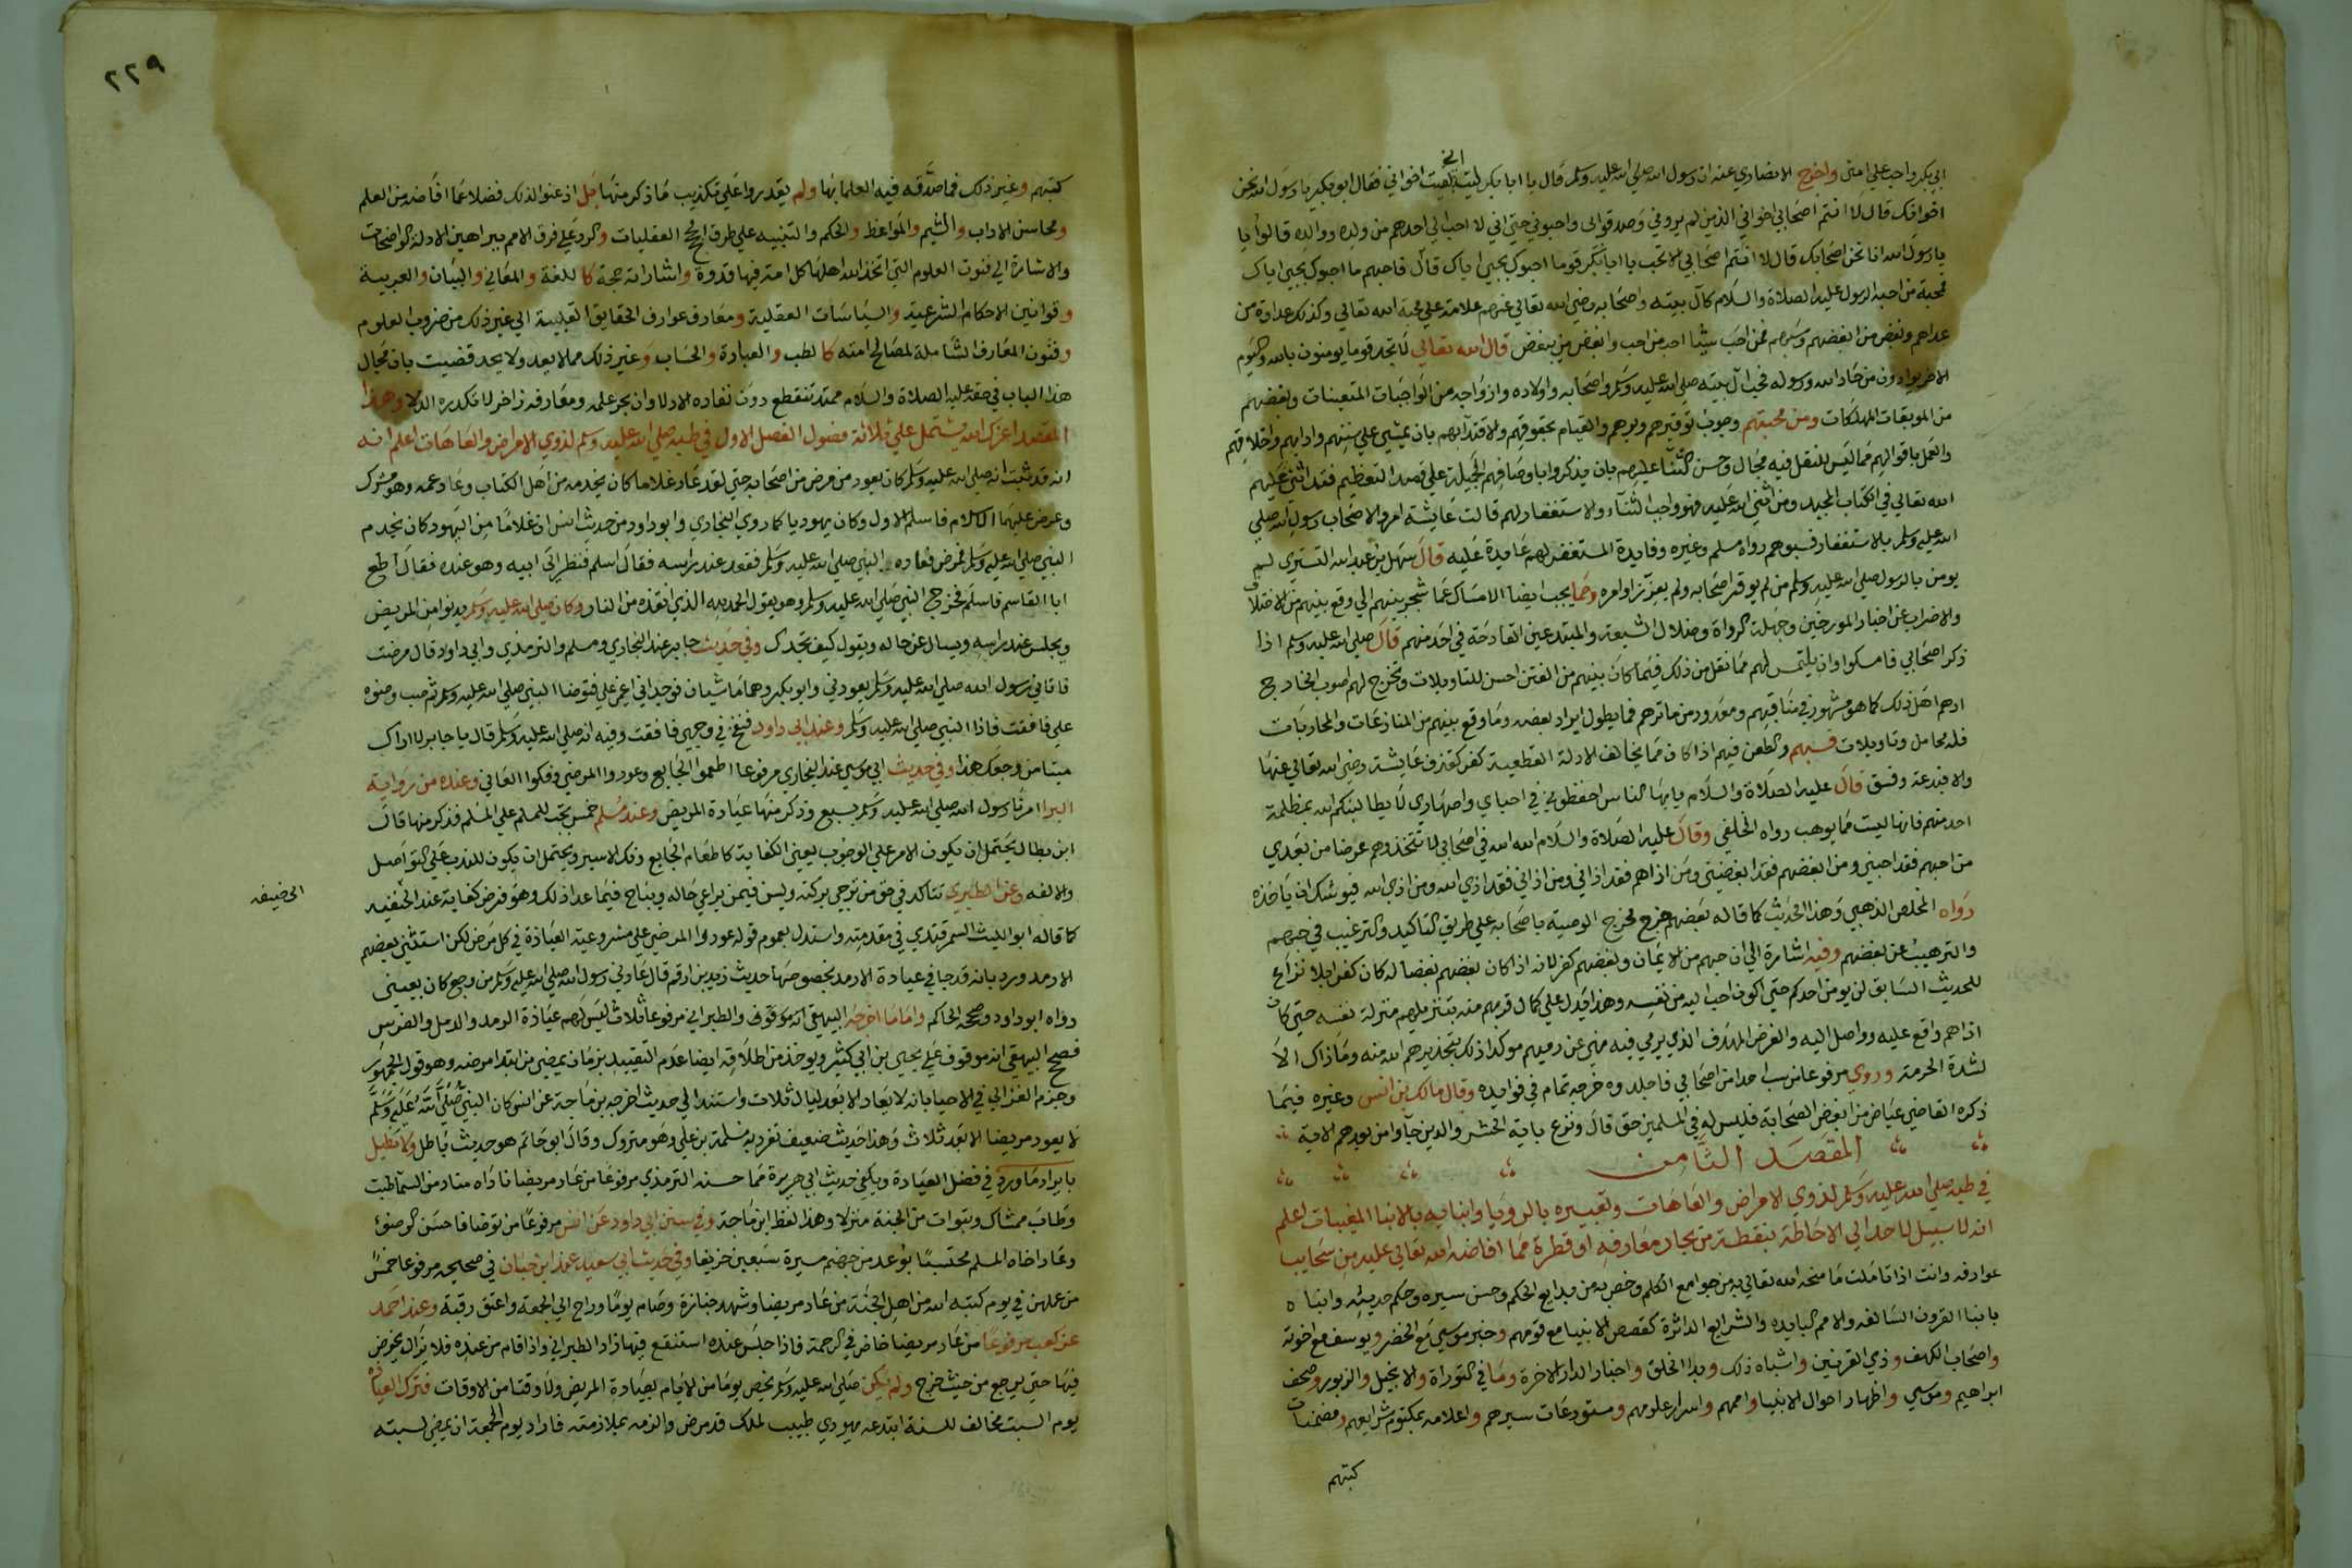 ابي بكر واجب علي امتي واخرج الانصاري عنه ان رسول الله صلي الله عليه وسلم قال يا ابا بكر ليت لقيت اخواني فقال ابو بكر يا رسول الله نحن
اخوانك قال لا انتم اصحابي اخواني الذين لم يروني وصدقوا بي واحبوني حتي اني لا احب الي احدهم من ولده ووالده قالوا يا
يا رسول الله انا نحن اصحابك قال لا انتم اصحابي الا تحب يا ابا بكر قوما احبوك بحبي اياك قال فاحبهم ما احبوك بحبي اياك
فمحبة من احبه الرسول عليه الصلاة والسلام كآل بيته واصحابه رضي الله تعالي عنهم علامة علي محبة الله تعالي وكذلك عداوة من
عداهم وبغض من ابغضهم وسبهم فمن احب شيئا احب من احب وابغض من يبغض قال الله تعالي لا تجد قوما يومنون بالله واليوم
الاخر يوادون من حاد الله ورسوله فحب آل بيته صلي الله عليه وسلم واصحابه واولاده وازواجه من الواجبات المتعينات وبغضهم
من الموبقات المهلكات ومن محبتهم وجوب توقيرهم وبرهم والقيام بحقوقهم والاقتدآ بهم بان يمشي علي سننهم وادابهم واخلاقهم
والعمل باقوالهم مما ليس للعقل فيه مجال وحسن الثنآ عليهم بان يذكروا باوصافهم الجميلة علي قصد التعظيم فقد اثني عليهم
الله تعالي في الكتاب المجيد ومن اثني الله عليه فهو واجب الثنآء والاستغفار لهم قالت عايشة امروا لاصحاب رسول الله صلي
الله عليه وسلم بالاستغفار فسبوهم رواه مسلم وغيره وفايدة المستغفر لهم عايدة عليه قال سهل بن عبد الله التستري لم
يومن بالرسول صلي الله عليه وسلم من لم يوقر اصحابه ولم يعزز اوامره ومما يجب ايضا الامساك عما شجر بينهم اي وقع بينهم من الاختلاف
والاضراب عن اخبار المورخين وجهلة الرواة وضلال الشيعة والمبتدعين القادحة في احد منهم قال صلي الله عليه وسلم اذا
ذكر اصحابي فامسكوا وان يلتمس لهم مما نقل من ذلك فيما كان بينهم من الفتن احسن التاويلات وتخرج لهم اصوب المخارج
اذ هم اهل ذلك كما هو مشهور في مناقبهم ومعدود من ماثرهم فما يطول ايراد بعضه وما وقع بينهم من المنازعات والمحاربات
فله محامل وتاويلات فسبهم والطعن فيهم اذا كان مما يخالف الادلة القطعية كفر كقذف عايشة رضي الله تعالي عنها
والا فبدعة وفسق قال عليه الصلاة والسلام يا يها الناس احفظوني في احبابي واصهاري لا يطالبنكم الله بمظلمة
احد منهم فانها ليست مما يوهب رواه الخلعي وقال عليه الصلاة والسلام الله الله في اصحابي لا تتخذوهم غرضا من بعدي
من احبهم فقد احبني ومن ابغضهم فقد ابغضني ومن اذاهم فقد اذاني ومن اذاني فقد اذي الله ومن اذي الله فيوشك ان ياخذه
رواه المخلص الذهبي وهذا الحديث كما قاله بعضهم خرج مخرج الوصية باصحابه علي طريق التاكيد والترغيب في حبهم
والترهيب عن بغضهم وفيه اشارة الي ان حبهم من الايمان وبغضهم كفر لانه اذا كان بغضهم بغضا له كان كفرا بلا نزاع
للحديث السابق لن يومن احدكم حتي اكون احب اليه من نفسه وهذا يدل علي كمال قربهم منه بتنزيلهم منزلة نفسه حتي كان
اذاهم واقع عليه وواصل اليه والغرض الهدف الذي يرمي فيه فهي عن رميهم موكدا ذلك بتحذيرهم الله منه وما ذاك الا
لشدة الحرمة وروي مرفوعا من سب احدا من اصحابي فاجلدوه خرجه تمام في فوايده وقال مالك بن انس وغيره فيما
ذكره القاضي عياض من ابغض الصحابة فليس له في المسلمين حق قال ونزع باية الحشر والذين جآوا من بعدهم الاية
المقصد الثامن
في طبه صلي الله عليه وسلم لذوي الامراض والعاهات وتعبيره بالرويا وانبايه بالانبا المغيبات اعلم
انه لا سبيل لاحد الي الاحاطة بنقطة من بحار معارفه او قطرة مما افاضه الله تعالي عليه من سحايب
عوارفه وانت اذا تاملت ما منحه الله تعالي به من جوامع الكلم وخصه به من بدايع الحكم وحسن سيره وحكم حديثه وانباه
بانبا القرون السالفه والامم البايده والشرايع الداثرة كقصص الانبيا مع قومهم وخبر موسي مع الخضر ويوسف مع اخوته
واصحاب الكهف وذي القرنين واشباه ذلك وبدا الخلق واخبار الدار الاخرة وما في التوراة والانجيل والزبور وصحف
ابراهيم وموسي واظهار احوال الانبيا واممهم واسرار علومهم ومستودعات سيرهم واعلامه بمكتوم شرايعهم ومضمنات
كتبهم
٢٢٩
كتبهم وغير ذلك مما صدقه فيه العلما بها ولم يقدروا علي تكذيب ما ذكر منها بل اذعنوا لذلك فضلا عما افاضه من العلم
ومحاسن الاداب والشيم والمواعظ والحكم والتنبيه علي طرق الحجج العقليات والرد علي فرق الامم ببراهين الادلة الواضحات
والاشارة الي فنون العلوم التي اتخذ الله اهلها كلامه فيها قدوة واشاراته حجة كاللغة والمعاني والبيان والعربية
وقوانين الاحكام الشرعية والسياسات العقلية ومعارف عوارف الحقايق القلبية الي غير ذلك من ضروب العلوم
وفنون المعارف الشاملة لمصالح امته كالطب والعبارة والحساب وغير ذلك مما لا يعد ولا يحد قضيت بان مجال
هذا الباب في حقه عليه الصلاة والسلام ممتد تنقطع دون نفاده الادلا وان بحر علمه ومعارفه زاخر لا تكدره الدلا وهذا
المقصد اعزك الله يشتمل علي ثلاثة فصول الفصل الاول في طبه صلي الله عليه وسلم لذوي الامراض والعاهات اعلم انه
انه قد ثبت انه صلي الله عليه وسلم كان يعود من مرض من اصحابه حتي لقد عاد غلاما كان يخدمه من اهل الكتاب وعاد عمه وهو مشرك
وعرض عليهما الاسلام فاسلم الاول وكان يهوديا كما روي البخاري وابو داود من حديث انس ان غلاما من اليهود كان يخدم
النبي صلي الله عليه وسلم فمرض فعاده النبي صلي الله عليه وسلم فقعد عند راسه فقال اسلم فنظر الي ابيه وهو عنده فقال اطع
ابا القاسم فاسلم فخرج النبي صلي الله عليه وسلم وهو يقول الحمد لله الذي انقذه من النار وكان صلي الله عليه وسلم يدنوا من المريض
ويجلس عند راسه ويسال عن حاله ويقول كيف تجدك وفي حديث جابر عند البخاري ومسلم والترمذي وابي داود قال مرضت
فاتاني رسول الله صلي الله عليه وسلم يعودني وابو بكر وهما ماشيان فوجداني اغمي علي فتوضا النبي صلي الله عليه وسلم ثم صب وضوه
علي فافقت فاذا النبي صلي الله عليه وسلم وعند ابي داود فنفخ في وجهي فافقت وفيه انه صلي الله عليه وسلم قال يا جابر لا اراك
ميتا من وجعك هذا وفي حديث ابي موسي عند البخاري مرفوعا اطعموا الجايع وعودوا المرضي وفكوا العاني وعنده من رواية
البرا امرنا رسول الله صلي الله عليه وسلم بسبع وذكر منها عيادة المريض وعند مسلم خمس تجب للمسلم علي المسلم فذكر منها قال
ابن بطال يحتمل ان يكون الامر علي الوجوب يعني الكفاية كاطعام الجايع وفك الاسير ويحتمل ان يكون للندب علي التواصل
والالفه وعن الطبري تتاكد في حق من ترجي بركته ويسن فيمن يراعي حاله ويباح فيما عدا ذلك وهو فرض كفاية عند الحنفيه
ابي حنيفه
كما قاله ابو الليث السمرقندي في مقدمته واستدل بعموم قوله عودوا المرضي علي مشروعية العيادة في كل مرض لكن استثني بعضهم
الارمد ورد بانه قد جا في عيادة الارمد بخصوصها حديث زيد بن ارقم قال عادني رسول الله صلي الله عليه وسلم من وجع كان بعيني
رواه ابو داود وصححه الحاكم واما ما اخرجه البيهقي انه موقوف والطبراني مرفوعا ثلاث ليس لهم عيادة الرمد والدمل والضرس
فصحح البيهقي انه موقوف علي يحيي بن ابي كثير ويوخذ من اطلاقه ايضا عدم التقييد بزمان يمضي من ابتدا مرضه وهو قول الجمهور
وجزم الغزالي في الاحيا بانه لا يعاد الا بعد ليال ثلاث واستند الي حديث اخرجه بن ماجة عن انس كان النبي صلي الله عليه وسلم
لا يعود مريضا الا بعد ثلاث وهذا حديث ضعيف تفرد به مسلمة بن علي وهو متروك وقال ابو حاتم هو حديث باطل ولا نطيل
بايراد ما ورد في فضل العيادة ويكفي حديث ابي هريرة مما حسنه الترمذي مرفوعا من عاد مريضا ناداه مناد من السمآ طبت
وطاب ممشاك وتبوات من الجنة منزلا وهذا لفظ ابن ماجة وفي سنن ابي داود عن انس مرفوعا من توضا فاحسن الوضوء
وعاد اخاه المسلم محتسبا بوعد من جهنم مسيرة سبعين خريفا وفي حديث ابي سعيد عند ابن حبان في صحيحه مرفوعا خمس
من عملهن في يوم كتبه الله من اهل الجنة من عاد مريضا وشهد جنازة وصام يوما وراح الي الجمعة واعتق رقبة وعند احمد
عن كعب مرفوعا من عاد مريضا خاض في الرحمة فاذا جلس عنده استنقع فيها زاد الطبراني واذا قام من عنده فلا يزال يخوض
فيها حتي يرجع من حيث خرج ولم يكن صلي الله عليه وسلم يخص يوما من الايام بعيادة المريض ولا وقتا من الاوقات فترك العيادة
يوم السبت مخالف للسنة ابتدعه يهودي طبيب لملك قد مرض والزمه بملازمته فاراد يوم الجمعة ان يمضي لسبته